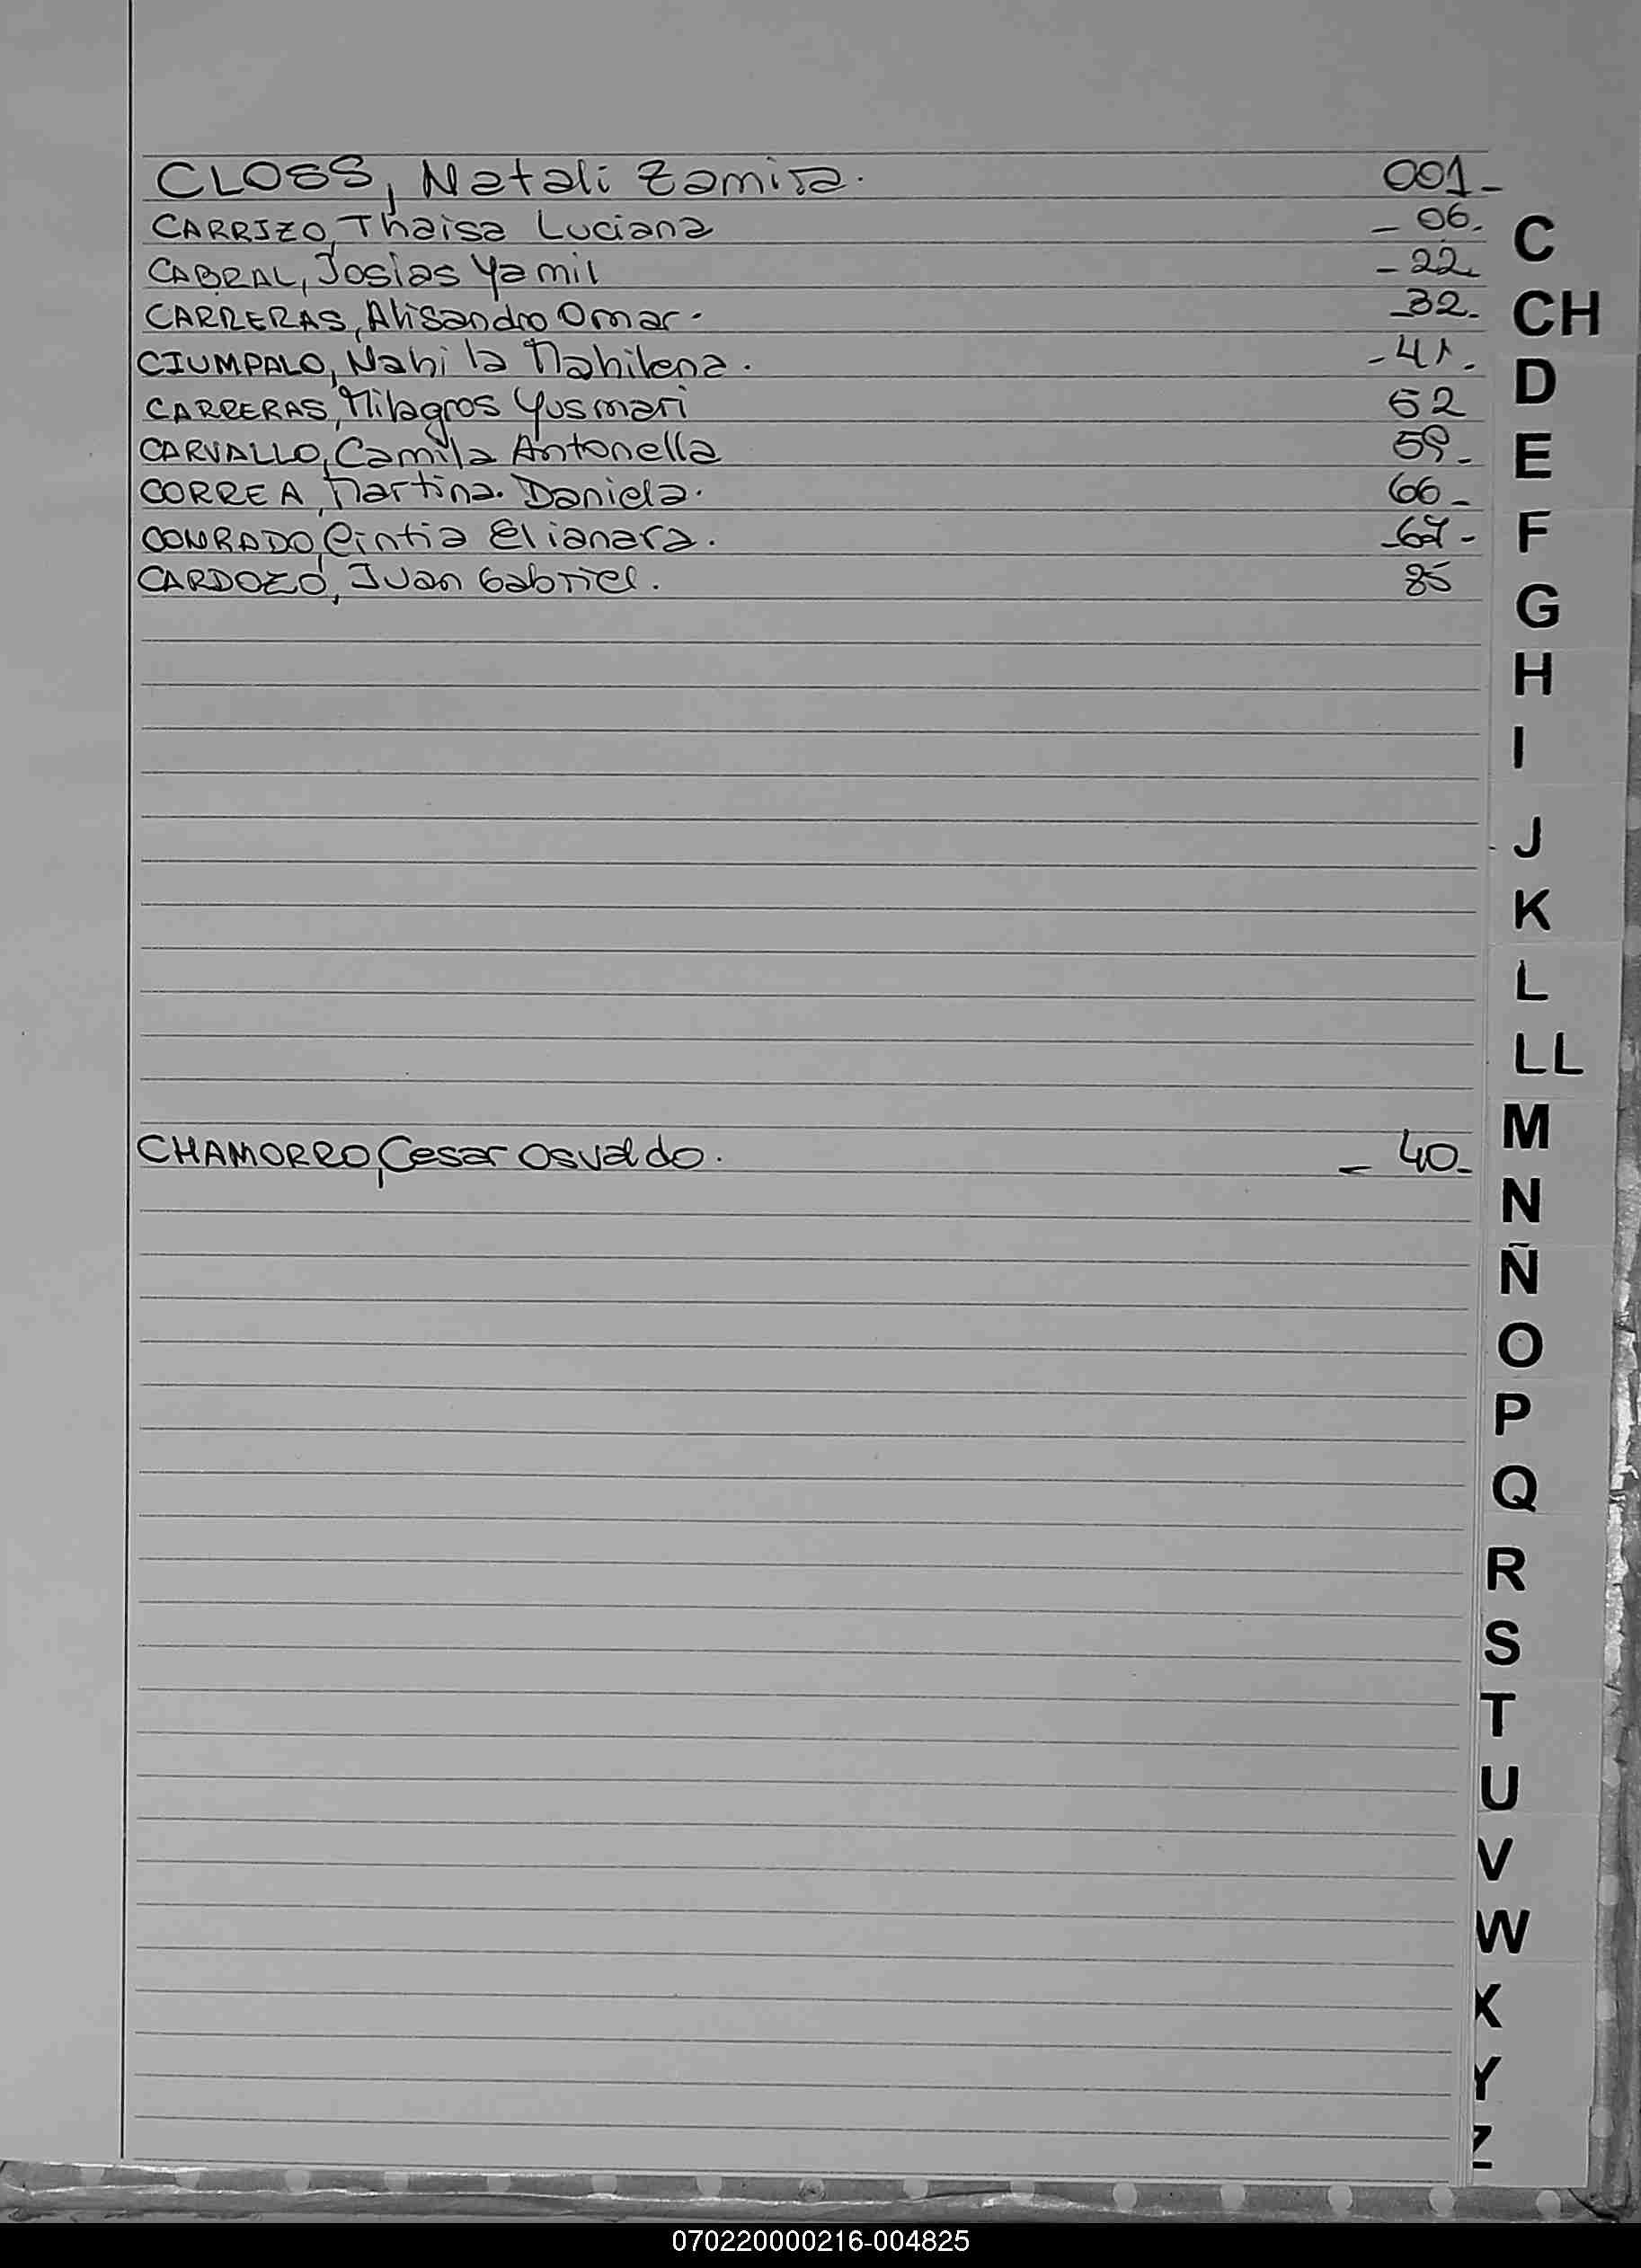 CLOSS, Natali Zamira. 001-
CARRIZO, Thaisa Luciana - 06.
C
CABRAL, Josias Yamil - 22
CARRERAS, Alisandro Omar. -32-
CH
CIUMPALO, Nahila Mahilena. -41.
D
CARRERAS, Milagros Yusmari 52
CARVALLO, Camila Antonella 59-
E
CORREA, Martina Daniela. 66-
CONRADO, Cintia Elianara. -67-
F
CARDOZO, Juan Gabriel. 85
G
H
I
J
K
L
LL
M
CHAMORRO, Cesar Osvaldo. - 40-
N
Ñ
O
P
Q
R
S
T
U
V
W
X
Y
Z
070220000216-004825